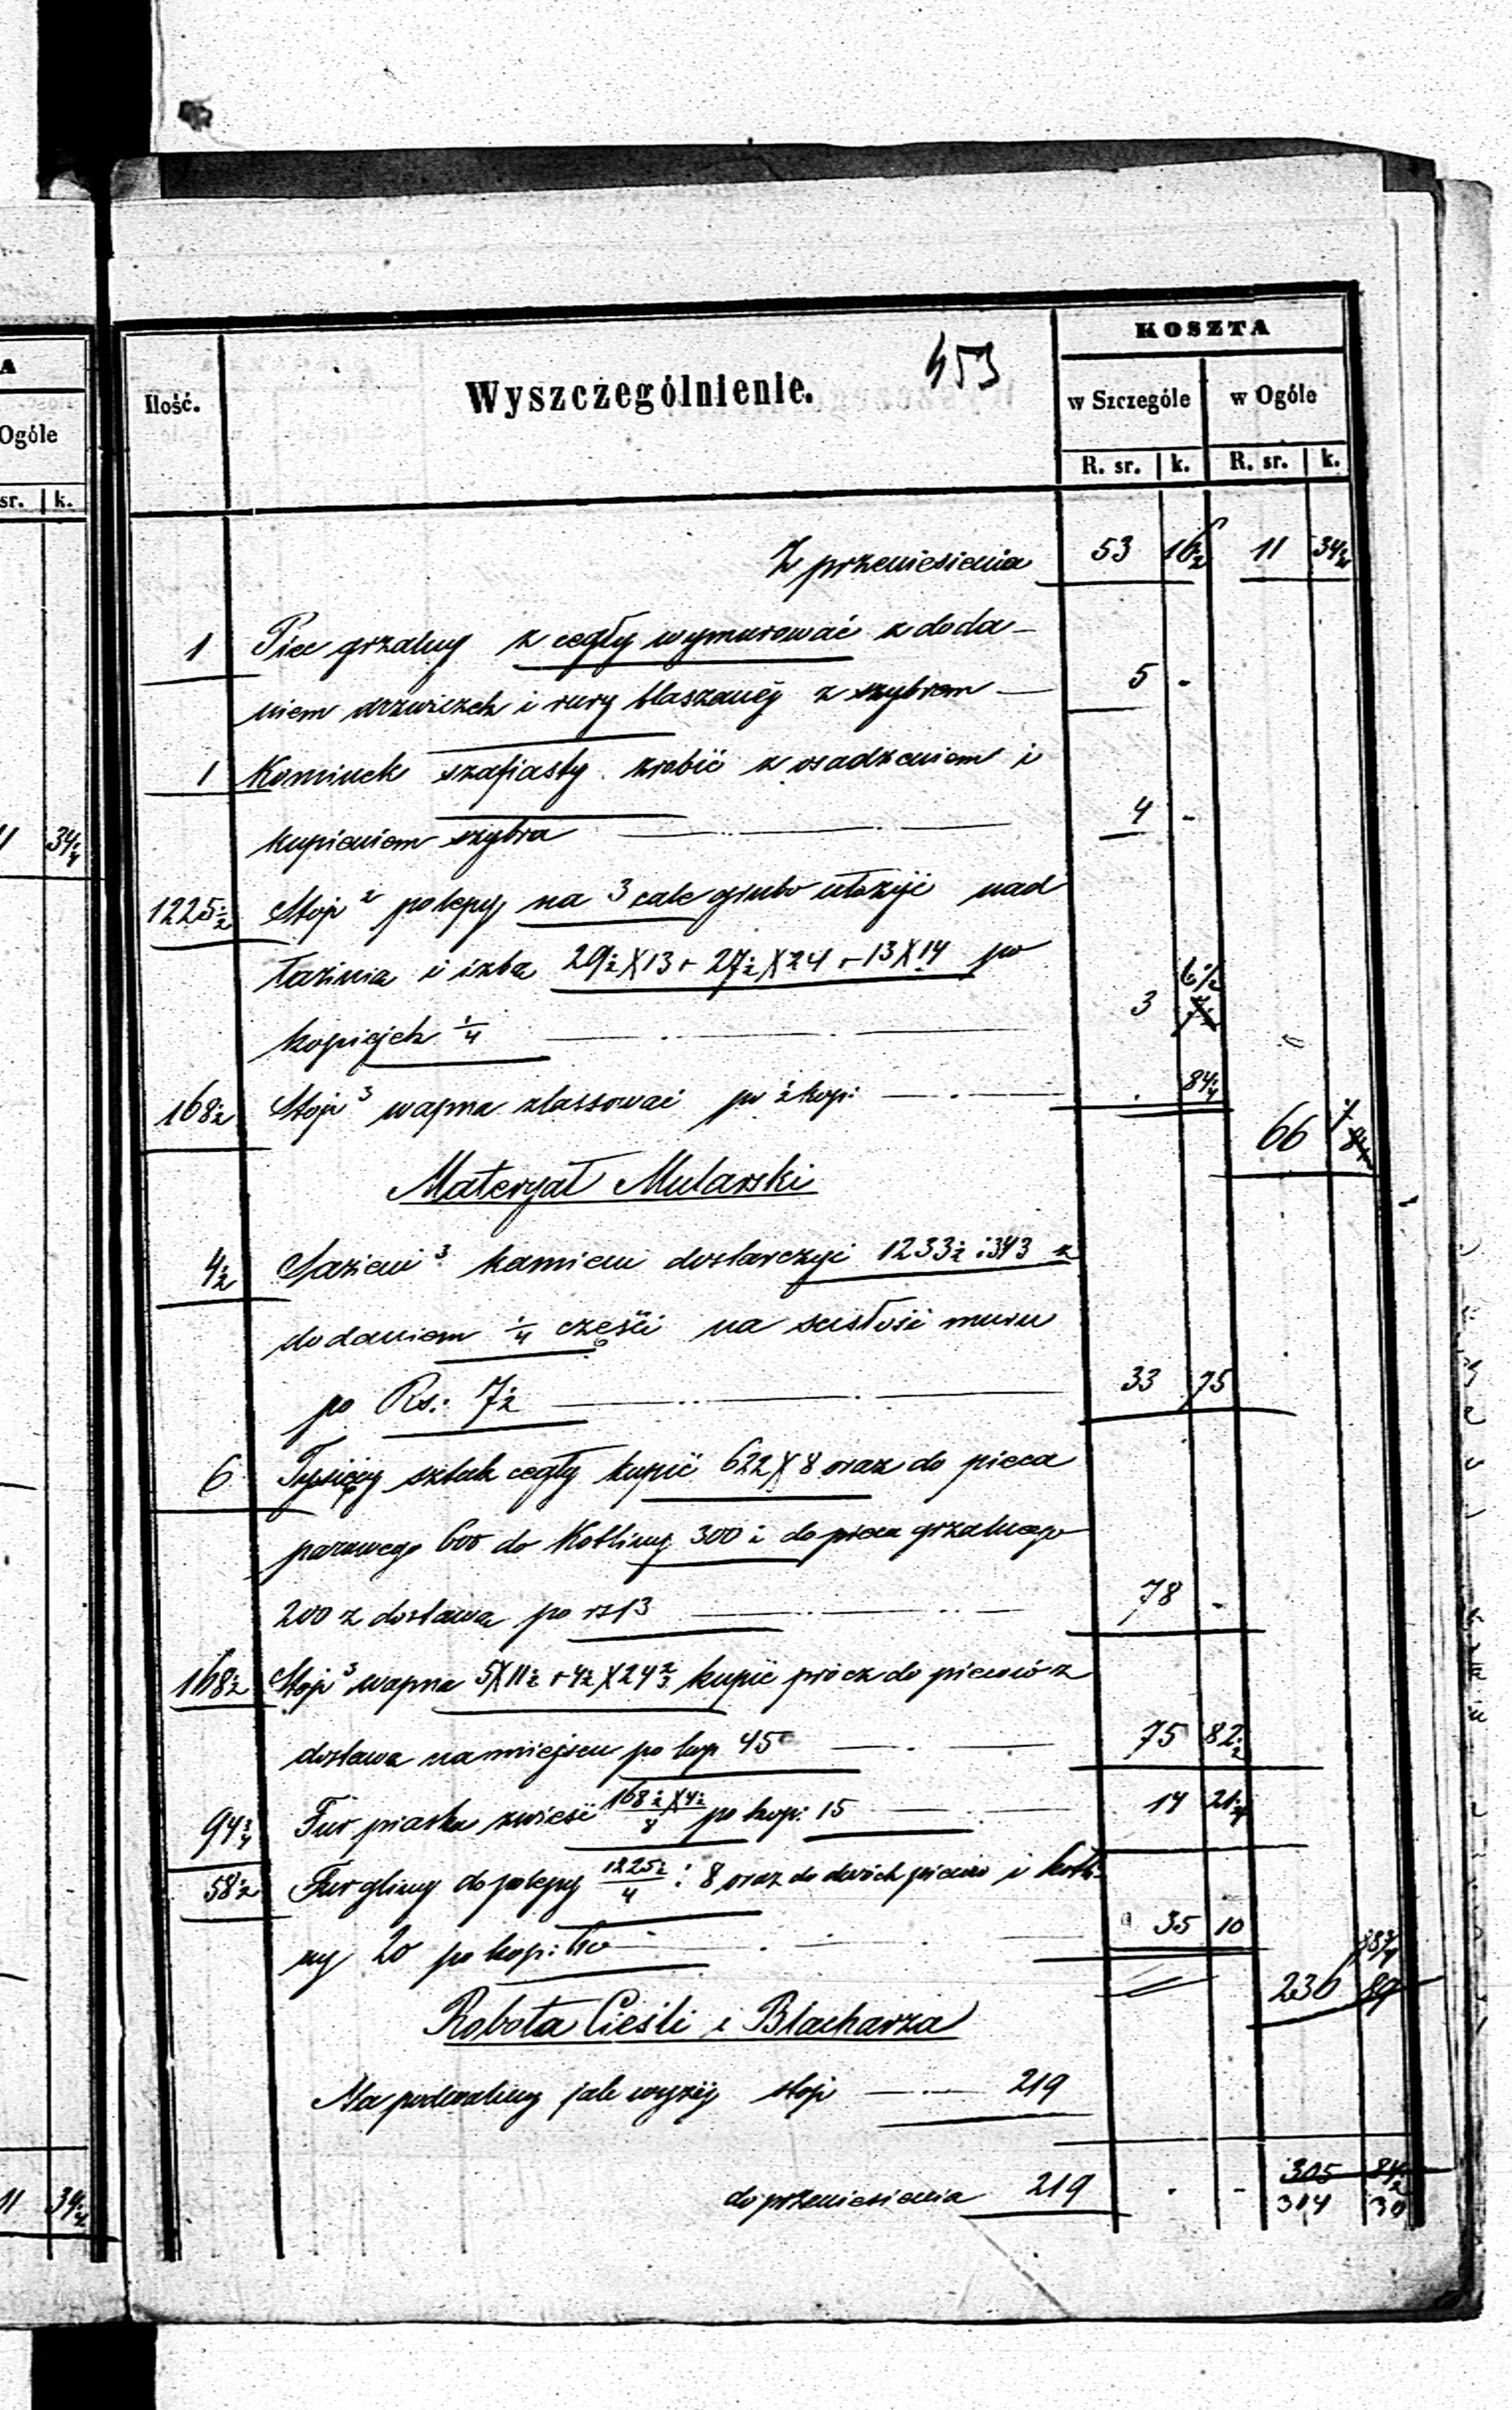 KOSZTA
Ilość. Wyszczególnienie. 453 w Szczególe w Ogóle
R. sr. k. R. sr. k.
Z przeniesienia 53 16½ 11 34½
1 Piec grzalny z cegły wymurować z doda-
niem drzwiczek i rury blaszanéj z szybrem — 5 -
1 Kominek szafiasty zrobić z osadzeniem i
kupieniem szybra — 4 -
1225½ Stóp² polepy na 3 cale grubo ułożyć nad
łazinia i izba 29½X13+27½X24+13X14 po
kopiejek ¼ — 3 6½
168½ Stóp³ wapna zlassować po ½ kop: — . 84¼
66 7
Materyał Mularski
4½ Sązieni³ kamieni dostarczyć 1233½:343 z
dodaniem ¼ części na scisłość muru
po Rs: 7½ — 33 75
6 Tysięcy sztuk cegły kupić 622X8 oraz do pieca
parowego 600 do Kotliny 300 i do pieca grzalnego
200 z dostawa po rs 13 — 78 -
168½ Stóp³ wapna 5X11½+4½X24⅔ kupić prócz do pieców z
dostawa na miejscu po kop 45 — 75 82½
94¾ Fur piasku zwieść 168½X4½/8 po kop: 15 — 14 21¼
58½ Fur gliny do polepy 1225½/4 : 8 oraz do dwóch pieców i kotli-
ny 20 po kop: 60 — 35 10
88¾
230 89
Robota Cieśli i Blacharza
Na podwaliny jak wyżéj stóp — 219
do przeniesienia 219 . - 305 84½
314 30
A
Ogóle
sr. k.
11 34¼
11 34¼